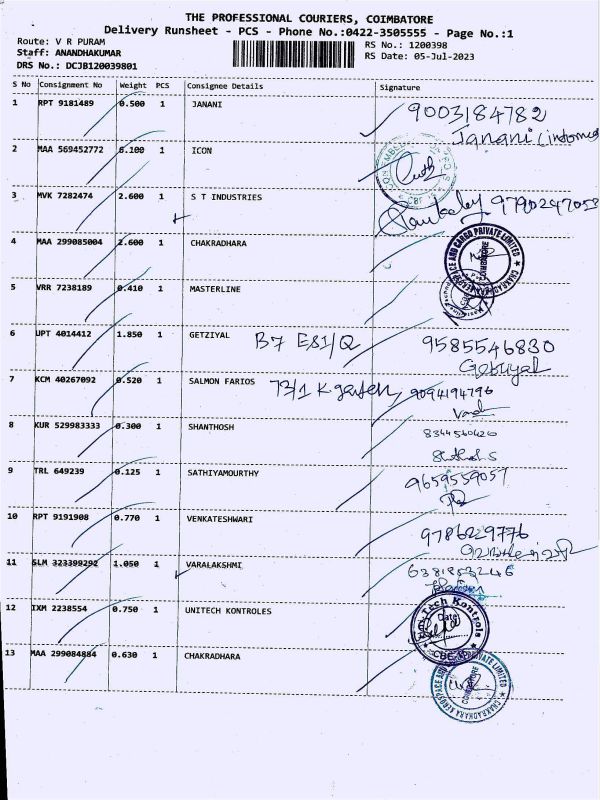 THE PROFESSIONAL COURIERS, COIMBATORE
Delivery Runsheet - PCS - Phone No.:0422-3505555 - Page No.:1
Route: V R PURAM
Staff: ANANDHAKUMAR
DRS No.: DCJB120039801
RS No.: 1200398
RS Date: 05-Jul-2023
S No Consignment No Weight PCS Consignee Details Signature
1 RPT 9181489 0.500 1 JANANI 9003184782
Janani
2 MAA 569452772 6.100 1 ICON
3 MVK 7282474 2.600 1 S T INDUSTRIES 9790247053
4 MAA 299085004 2.600 1 CHAKRADHARA
5 VRR 7238189 0.410 1 MASTERLINE
6 UPT 4014412 1.850 1 GETZIYAL B7 ESI/Q 9585546830
7 KCM 40267092 0.520 1 SALMON FARIOS 73/1 K garden 9094194796
8 KUR 529983333 0.300 1 SHANTHOSH 8344560420
9 TRL 649239 0.125 1 SATHIYAMOURTHY 9659559057
10 RPT 9191908 0.770 1 VENKATESHWARI 9786229776
11 SLM 323399292 1.050 1 VARALAKSHMI 6381853246
12 IXM 2238554 0.750 1 UNITECH KONTROLES
Uni Tech Kontrols
Date
CBE
13 MAA 299084884 0.630 1 CHAKRADHARA
CHAKRADHARA AEROSPACE AND CARGO PRIVATE LIMITED
COIMBATORE